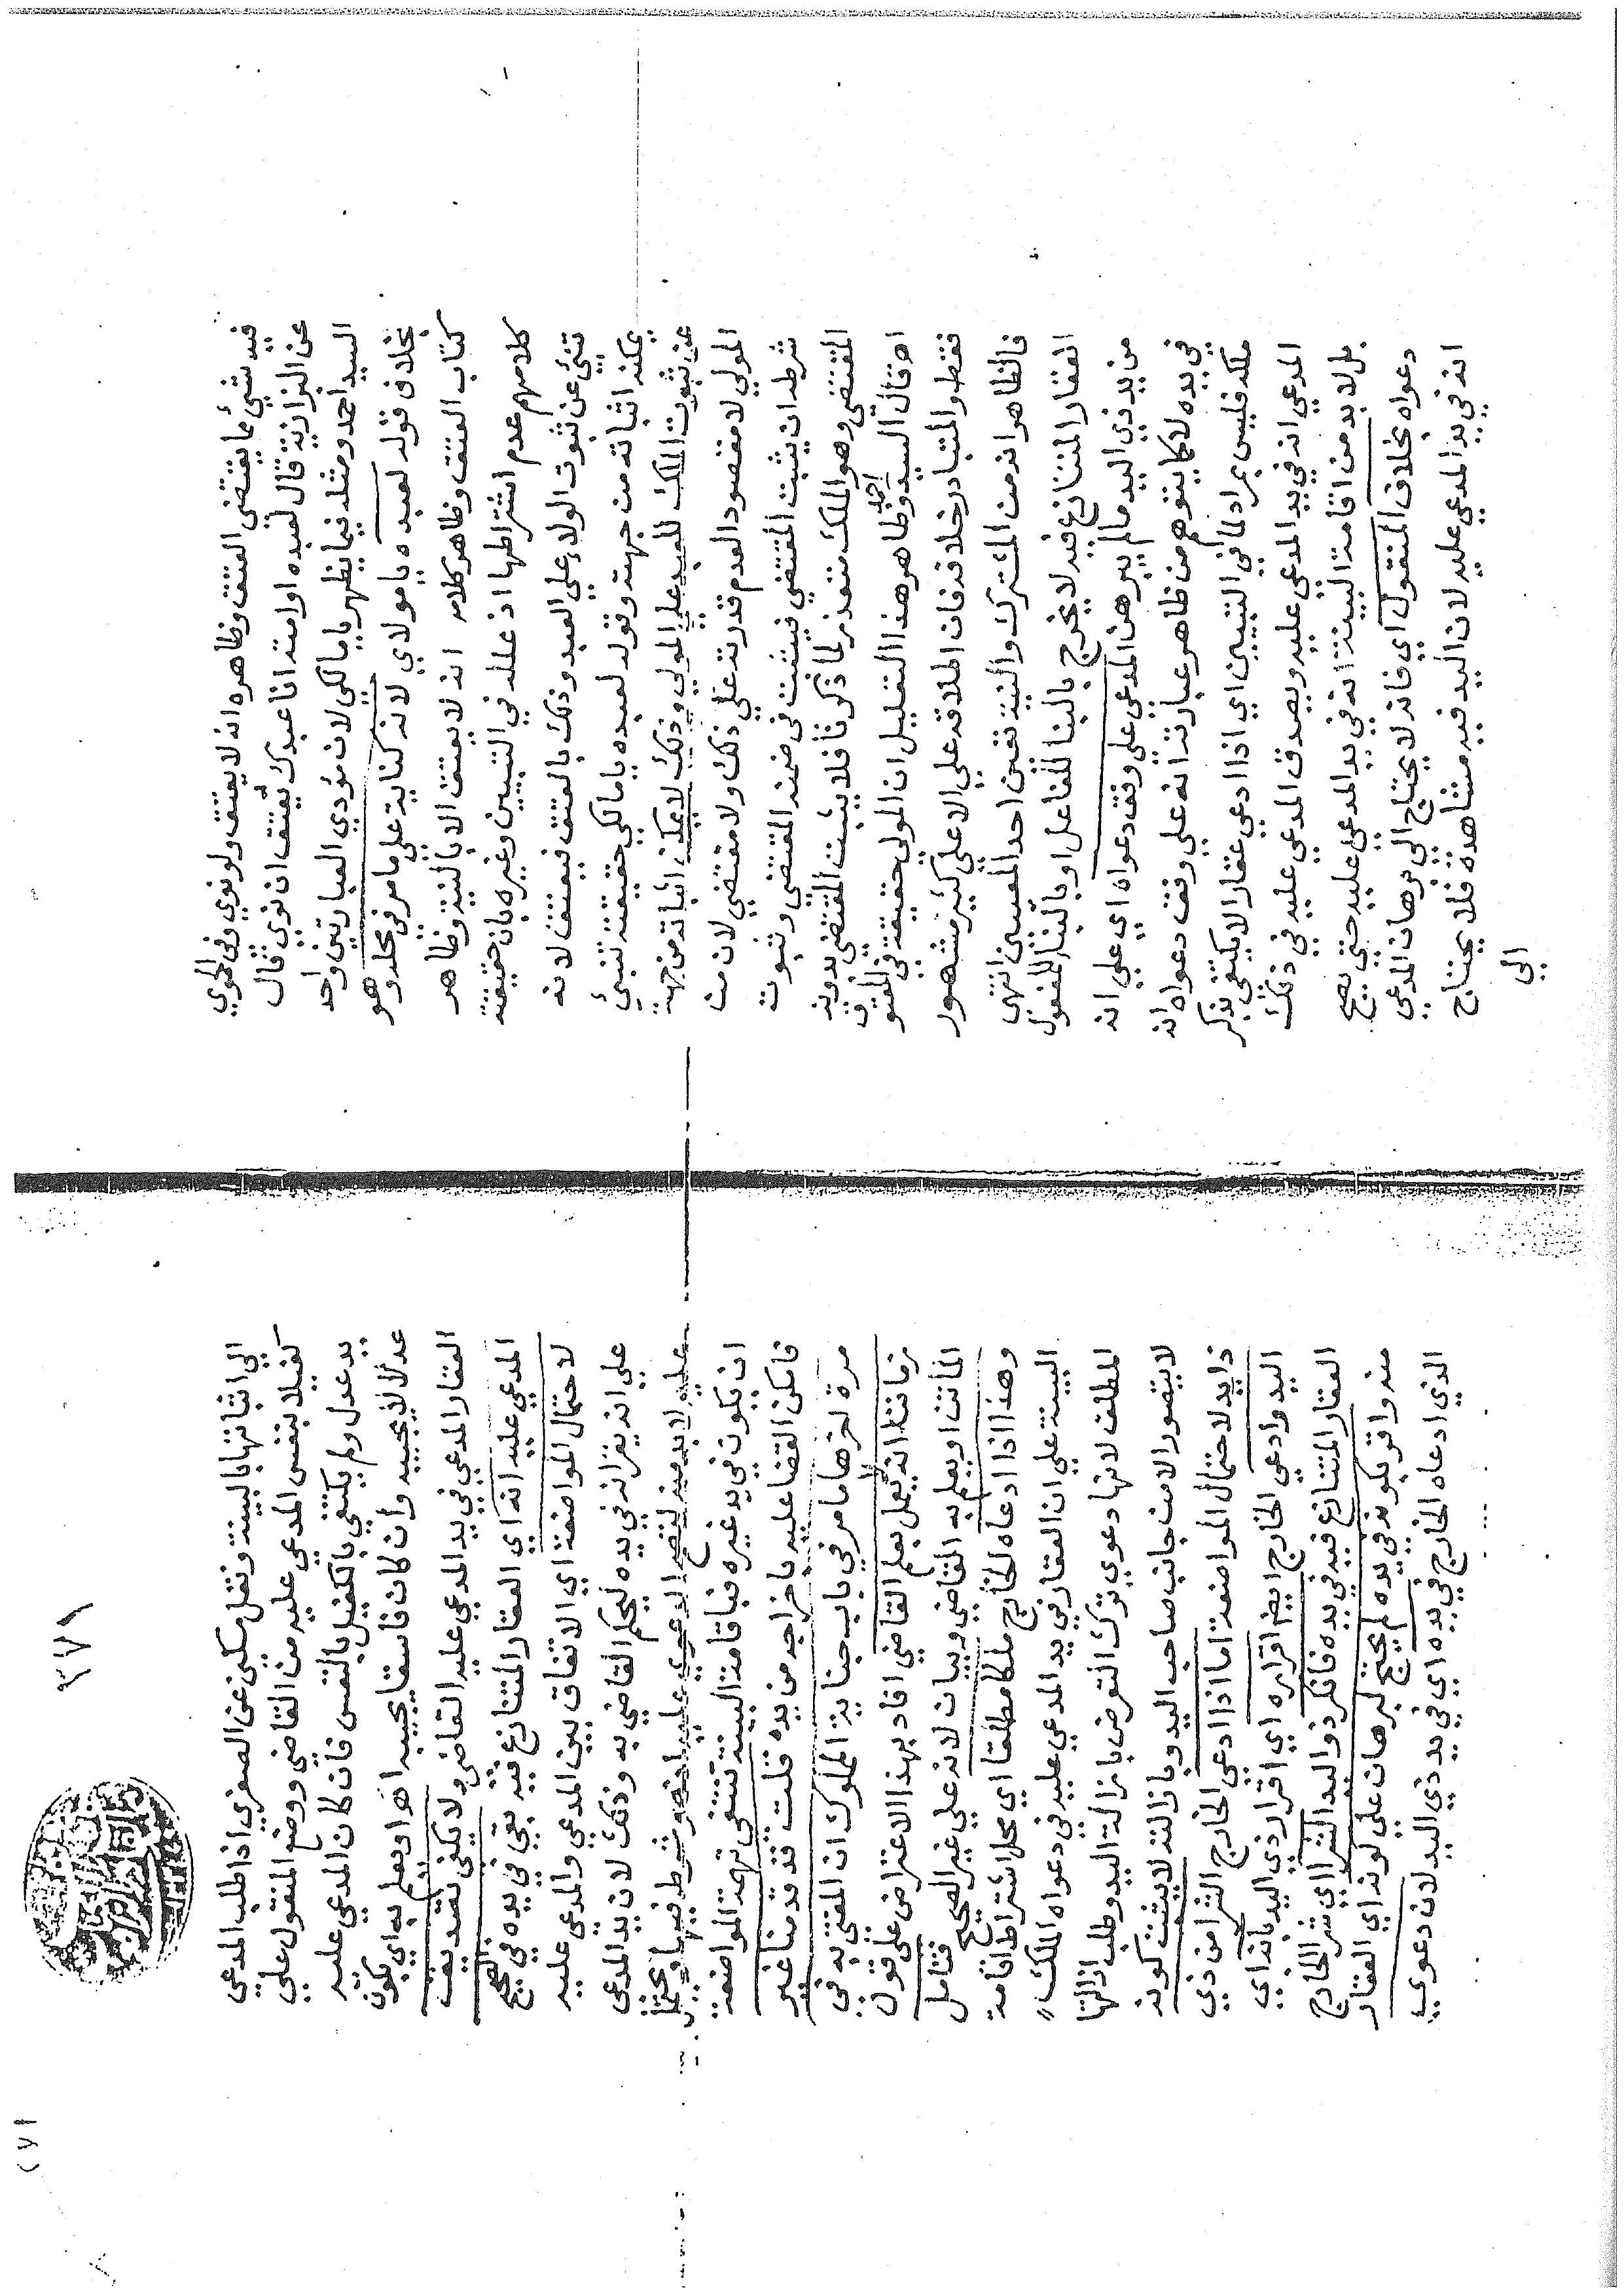 فيه شئ مما يقتضي العتق وظاهره انه لا يعتق ولو نوي وفي الحموي
عن البزازية قال لعبده او امته انا عبدك يعتق ان نوي قال
السيد احمد ومثله فيما يظهر يا مالكي لان مؤدي العبارتين واحد
بخلاف قوله لعبده يا مولاي لانه كناية علي ما مر في محله وهو
كتاب العتق وظاهر كلامه انه لا يعتق الا بالنية وظاهر
كلامهم عدم اشتراطها اذ علله في التبيين وغيره بان حقيقته
تنبئ عن ثبوت الولاء علي العبد وذلك بالعتق فيعتق لانه
يمكنه اثباته من جهته وقوله لعبده يا مالكي حقيقته تنبئ
عن ثبوت الملك للعبد علي المولي وذلك لا يمكن اثباته من جهة
المولي لا مقصود العدم قدرته علي ذلك ولا مقتضي لان من
شرطه ان يثبت المقتضي فيثبت في ضمنه المقتضي وثبوت
المقتضي وهو الملك متعذر لما ذكرنا فلا يثبت المقتضي بدونه
اه قال السيد احمد وظاهر هذا التعليل ان المولي حقيقة في المعتق
فقط والمتبادر خلافه فان اطلاقه علي الاعلي كثير مشهور
فالظاهر انه من المشترك والنية تعين احد المعنيين انتهي
العقار المتنازع فيه لا يخرج بالبنا للفاعل او بالبنا للمفعول
من يد ذي اليد ما لم يبرهن المدعي علي وفق دعواه اي علي انه
في يده لا كما يتوهم من ظاهر عبارته انه علي وفق دعواه انه
ملكه فليس بمراد لما في التبيين اي اذا ادعي عقارا لا يكتفي بذكر
المدعي انه في يد المدعي عليه وبصدق المدعي عليه في ذلك
بل لا بد من اقامة البينة انه في يد المدعي عليه حتي يصح
دعواه بخلاف المنقول اي فانه لا يحتاج الي برهان المدعي
انه في يد المدعي عليه لان اليد فيه مشاهدة فلا يحتاج
الي
٣٧١
٢٧١
الي اثباتها بالبينة ونقل مسكين عن الصغري اذا طلب المدعي
كفيلا بنفس المدعي عليه من القاضي ووضع المنقول علي
يد عدل ولم يكتفي بالكفيل بالنفس فان كان المدعي عليه
عدلا لا يجيبه وان كان فاسقا يجيبه اه او يعلم به اي بكون
العقار المدعي في يد المدعي عليه القاضي ولا يكفي تصديق
المدعي عليه انه اي العقار المتنازع فيه يقي في يده في الصحيح
لاحتمال المواضعة اي الاتفاق بين المدعي والمدعي عليه
علي انه يقر انه في يده ليحكم القاضي به وذلك لان يد المدعي
عليه لا بد منه لتصح الدعوي عليه اذ هو شرط فيها ويحتمل
ان يكون في يد غيره فباقامة البينة تنتفي تهمة المواضعة
فامكن القضا عليه باخراجه من يده قلت قد قدمنا غير
مرة اخرها ما مر في باب جناية المملوك ان المفتي به في
زماننا انه لا يعمل بعلم القاضي افاد بهذا الاعتراض علي قول
الماتن او يعلم به القاضي وبيان لانه علي غير الصحيح فتامل
وهذا اذا ادعاه الخارج ملكا مطلقا اي محل اشتراط اقامة
البينة علي ان العقار في يد المدعي عليه في دعواه الملك
المطلق لانها دعوي ترك التعرض بازالة اليد وطلب ازالتها
لا يتصور الا من جانب صاحب اليد وبازالته لا يثبت كونه
ذا يد لاحتمال المواضعة اما اذا ادعي الخارج الشرا من ذي
اليد وادعي الخارج ايضا اقراره اي اقرار ذي اليد بانه اي
العقار المتنازع فيه في يده فانكر ذو اليد الشرا اي شرا الخارج
منه واقر بكونه في يده لم يحتج لبرهان علي كونه اي العقار
الذي ادعاه الخارج في يده اي في يد ذي اليد لان دعوي